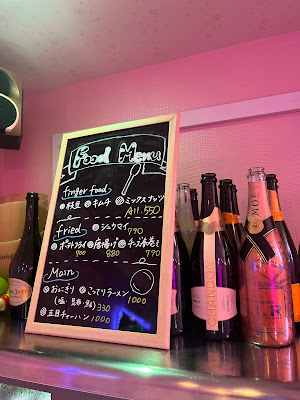 Food Menu
finger food
◎枝豆 ◎キムチ ◎ミックスナッツ
All. 550
Fried
◎シュウマイ
790
◎ポテトフライ ◎唐揚げ ◎チーズ春巻き
900 880 790
Main
◎おにぎり ◎こってりラーメン
(塩・昆布・鮭) 330 1000
◎五目チャーハン 1000
MOËT